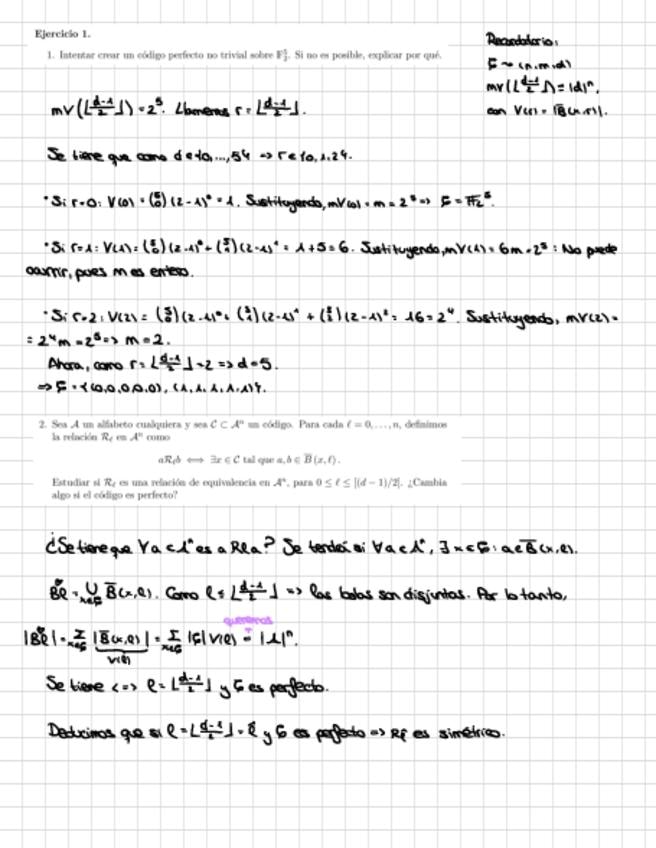 Ejercicio 1.
1. Intentar crear un código perfecto no trivial sobre 𝔽₂⁵. Si no es posible, explicar por qué.
Recordatorio:
C ~ (n,m,d)
mV(⌊(d-1)/2⌋) = |A|ⁿ,
con V(r) = |B̄(x,r)|.
mV(⌊(d-1)/2⌋) = 2⁵. Llamemos r = ⌊(d-1)/2⌋.
Se tiene que como d ∈ {0,...,5} => r ∈ {0,1,2}.
· Si r=0: V(0) = (5 0)(2-1)⁰ = 1. Sustituyendo, mV(0) = m = 2⁵ => C = 𝔽₂⁵.
· Si r=1: V(1) = (5 0)(2-1)⁰ + (5 1)(2-1)¹ = 1+5 = 6. Sustituyendo, mV(1) = 6m = 2⁵ : No puede
ocurrir, pues m es entero.
· Si r=2: V(2) = (5 0)(2-1)⁰ + (5 1)(2-1)¹ + (5 2)(2-1)² = 16 = 2⁴. Sustituyendo, mV(2) =
= 2⁴m = 2⁵ => m = 2.
Ahora, como r = ⌊(d-1)/2⌋ = 2 => d = 5.
=> C = {(0,0,0,0,0), (1,1,1,1,1)}.
2. Sea 𝒜 un alfabeto cualquiera y sea 𝒞 ⊂ 𝒜ⁿ un código. Para cada ℓ = 0, . . . , n, definimos
la relación ℛ_ℓ en 𝒜ⁿ como
aℛ_ℓb ⟺ ∃x ∈ 𝒞 tal que a, b ∈ B̄(x, ℓ).
Estudiar si ℛ_ℓ es una relación de equivalencia en 𝒜ⁿ, para 0 ≤ ℓ ≤ ⌊(d − 1)/2⌋. ¿Cambia
algo si el código es perfecto?
¿Se tiene que ∀a∈Aⁿ es a Rℓ a? Se tendrá si ∀a∈Aⁿ, ∃x∈C : a∈B̄(x,ℓ).
Bℓ = ∪_{x∈C} B̄(x,ℓ). Como ℓ ≤ ⌊(d-1)/2⌋ => las bolas son disjuntas. Por lo tanto,
queremos
|Bℓ| = Σ_{x∈C} |B̄(x,ℓ)| = Σ_{x∈C} |C| V(ℓ) = |A|ⁿ.
V(ℓ)
Se tiene <=> ℓ = ⌊(d-1)/2⌋ y C es perfecto.
Deducimos que si ℓ = ⌊(d-1)/2⌋ = ℓ̂ y C es perfecto => Rℓ̂ es simétrica.